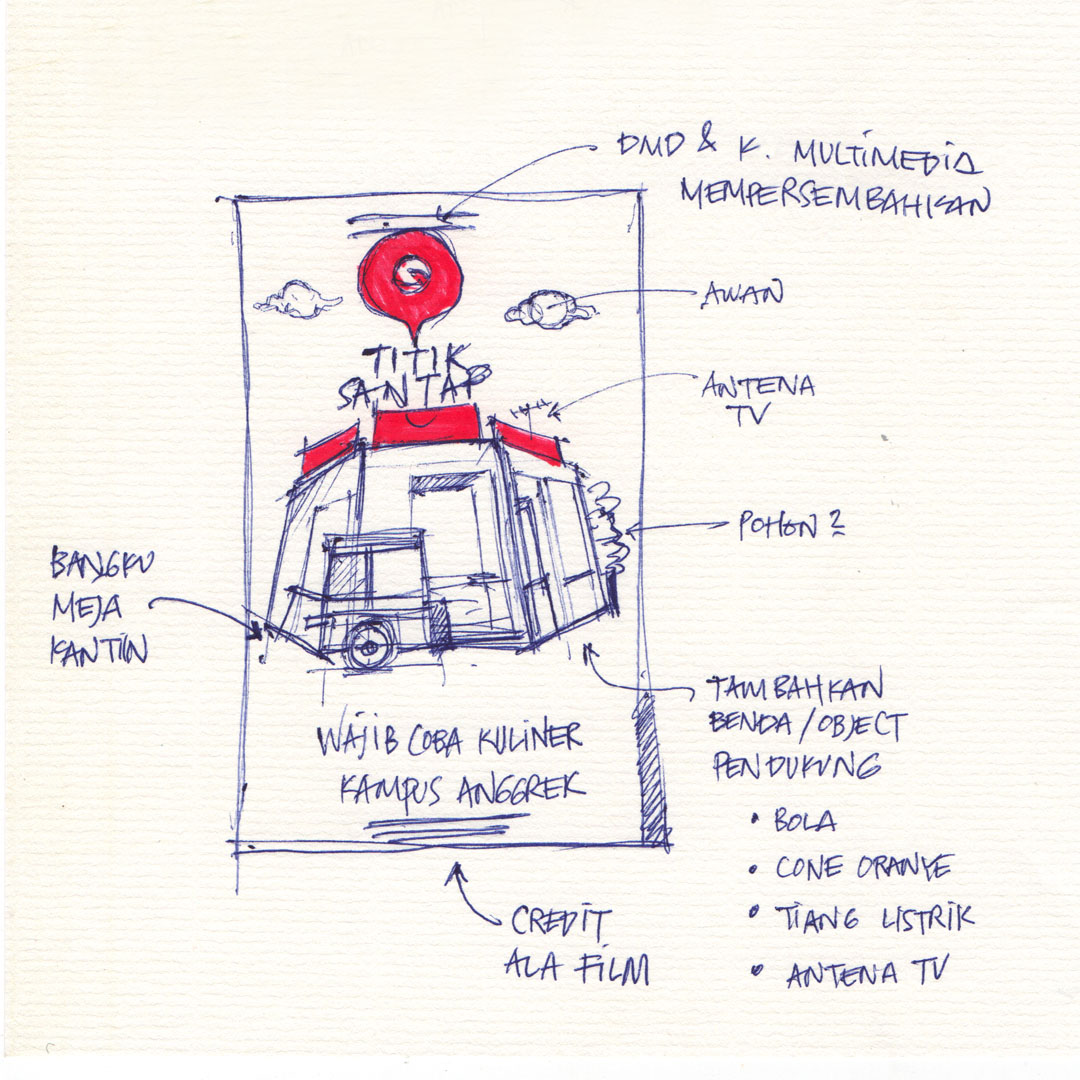 DMD & K. MULTIMEDIA
MEMPERSEMBAHKAN
AWAN
TITIK
SANTAP
ANTENA
TV
POHON ?
BANGKU
MEJA
KANTIN
TAMBAHKAN
BENDA/OBJECT
PENDUKUNG
• BOLA
• CONE ORANYE
• TIANG LISTRIK
• ANTENA TV
WAJIB COBA KULINER
KAMPUS ANGGREK
CREDIT
ALA FILM